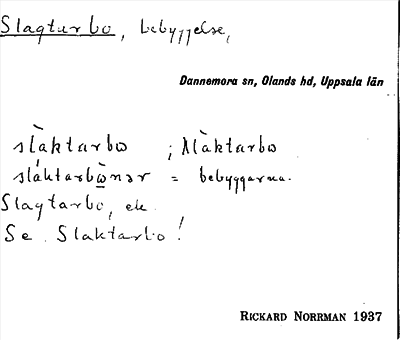 Slagtarbo, bebyggelse,
Dannemora sn, Olands hd, Uppsala län
slàktarbo ; slàktarbo
sláktarbònər = byggarna.
Slagtarbo, ek.
Se Slaktarbo!
RICKARD NORRMAN 1937